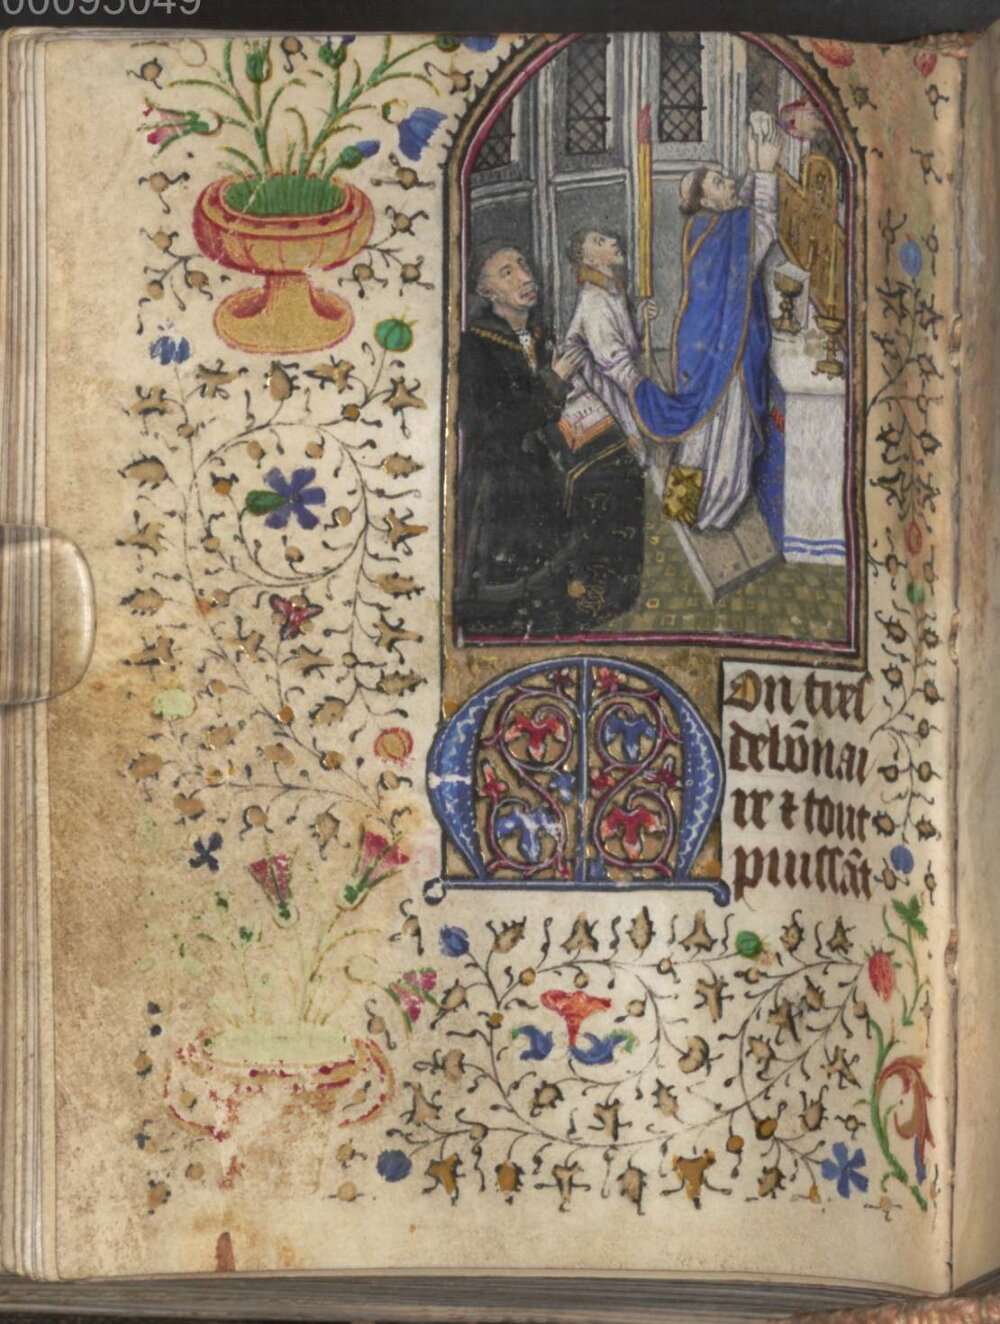 00095049
Mon tres
debõnai
re ⁊ tout
puissãt